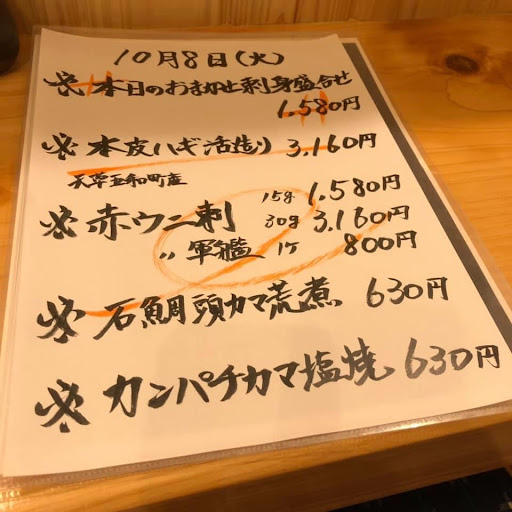 10月8日(火)
本日のおまかせ刺身盛合せ
1.580円
本皮ハギ活造り 3.160円
天草五和町産
赤ウニ刺 15g 1.580円
30g 3.160円
〃 軍艦 1ケ 800円
石鯛頭カマ荒煮 630円
カンパチカマ塩焼 630円